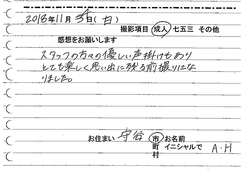 2018年11月5日(日)
撮影項目 成人 七五三 その他
感想をお願いします
スタッフの方々の優しい声掛けもあり
とても楽しく思い出に残る前撮りにな
りました。
お住まい 守谷 市 お名前
町 イニシャルで A・H
村